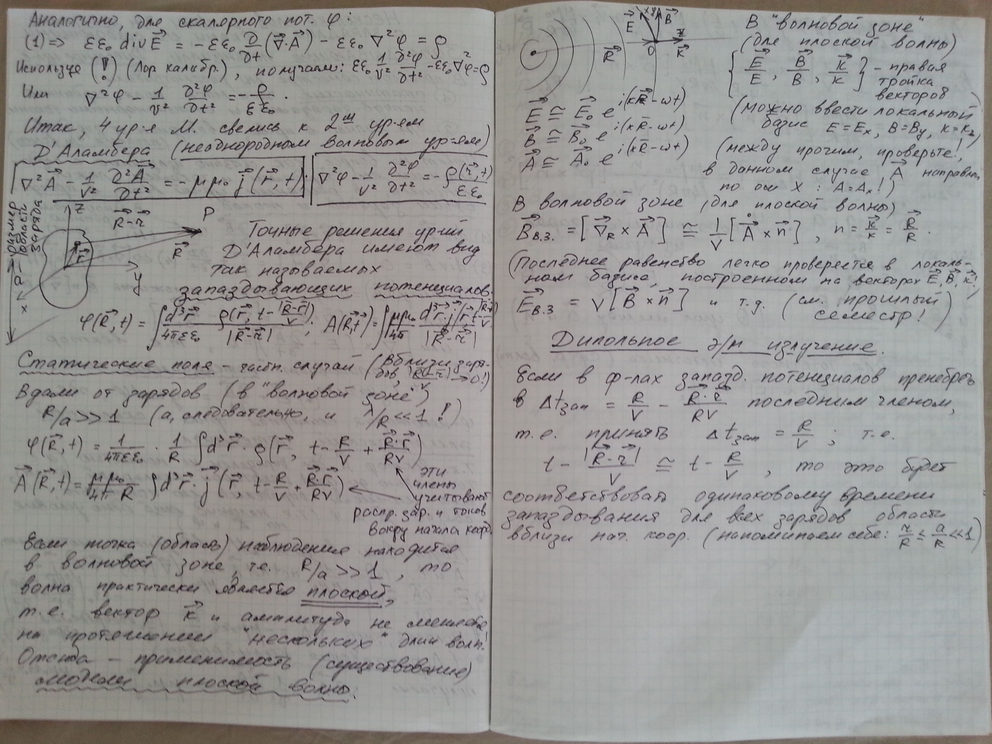 Аналогично, для скалярного пот. φ:
(1) => εε₀ div E⃗ = -εε₀ ∂/∂t (∇⃗·A⃗) - εε₀ ∇²φ = ρ
Используя (!) (Лор. калибр.), получаем: εε₀ 1/v² ∂²φ/∂t² - εε₀∇²φ = ρ
Или ∇²φ - 1/v² ∂²φ/∂t² = -ρ/εε₀.
Итак, 4 ур-я М. свелись к 2ᵐ ур-ям
Д'Аламбера (неоднородным волновым ур-ям)
∇²A⃗ - 1/v² ∂²A⃗/∂t² = -μμ₀ j⃗(r⃗, t) ; ∇²φ - 1/v² ∂²φ/∂t² = -ρ(r⃗,t)/εε₀
a - размер области заряда
z R⃗-r⃗ P
r⃗ R⃗ y x
Точные решения ур-ий
Д'Аламбера имеют вид
так называемых
запаздывающих потенциалов.
φ(R⃗, t) = ∫ d³r⃗/4πεε₀ ρ(r⃗, t - |R⃗-r⃗|/v)/|R⃗-r⃗| ; A(R⃗,t) = ∫ μμ₀/4π d³r⃗·j(r⃗, t - |R⃗-r⃗|/v)/|R⃗-r⃗|
Статические поля - частн. случай (Вблизи зарядов, |R⃗-r⃗|/v → 0!)
Вдали от зарядов (в "волновой зоне")
R/a >> 1 (а, следовательно, и λ/R << 1 !)
φ(R⃗, t) = 1/4πεε₀ · 1/R ∫ d³r⃗ · ρ(r⃗, t - R/v + R⃗·r⃗/Rv)
A⃗(R⃗, t) = μμ₀/4π R ∫ d³r⃗ · j⃗(r⃗, t - R/v + R⃗·r⃗/Rv)
эти
члены
учитывают
распр. зар. и токов
вокр начала коор.
Если точка (область) наблюдения находится
в волновой зоне, т.е. R/a >> 1, то
волна практически является плоской,
т.е. вектор k⃗ и амплитуда не меняется
на протяжении "нескольких" длин волн!
Отсюда - применимость (существование)
модели плоской волны.
E⃗ x y B⃗ O R⃗ k⃗ z
В "волновой зоне"
(для плоской волны)
{E⃗/E, B⃗/B, k⃗/k} - правая
тройка
векторов
E⃗ ≅ E⃗₀ e^i(kR⃗-ωt)
B⃗ ≅ B⃗₀ e^i(kR⃗-ωt)
A⃗ ≅ A⃗₀ e^i(kR⃗-ωt)
(можно ввести локальной
базис E = Eₓ, B = By, k = kz)
(между прочим, проверьте!,
в данном случае, A⃗ направлен
по оси X : A = Aₓ!)
В волновой зоне (для плоской волны)
B⃗в.з. = [∇⃗R × A⃗] ≅ 1/v [Ȧ⃗ × n⃗], n = k⃗/k = R⃗/R.
(Последнее равенство легко проверяется в локаль-
ном базисе, построенном на векторах E⃗, B⃗, k⃗)
E⃗в.з = v[B⃗ × n⃗] и т.д. (см. прошлый
семестр!)
Дипольное э/м излучение.
Если в ф-лах запазд. потенциалов пренебречь
в Δtзап = R/v - R⃗·r⃗/Rv последним членом,
т.е. принять Δtзап = R/v ; т.е.
t - |R⃗-r⃗|/v ≅ t - R/v, то это будет
соответствовать одинаковому времени
запаздывания для всех зарядов области
вблизи нач. коор. (напоминаем себе: r/R ≤ a/R << 1)